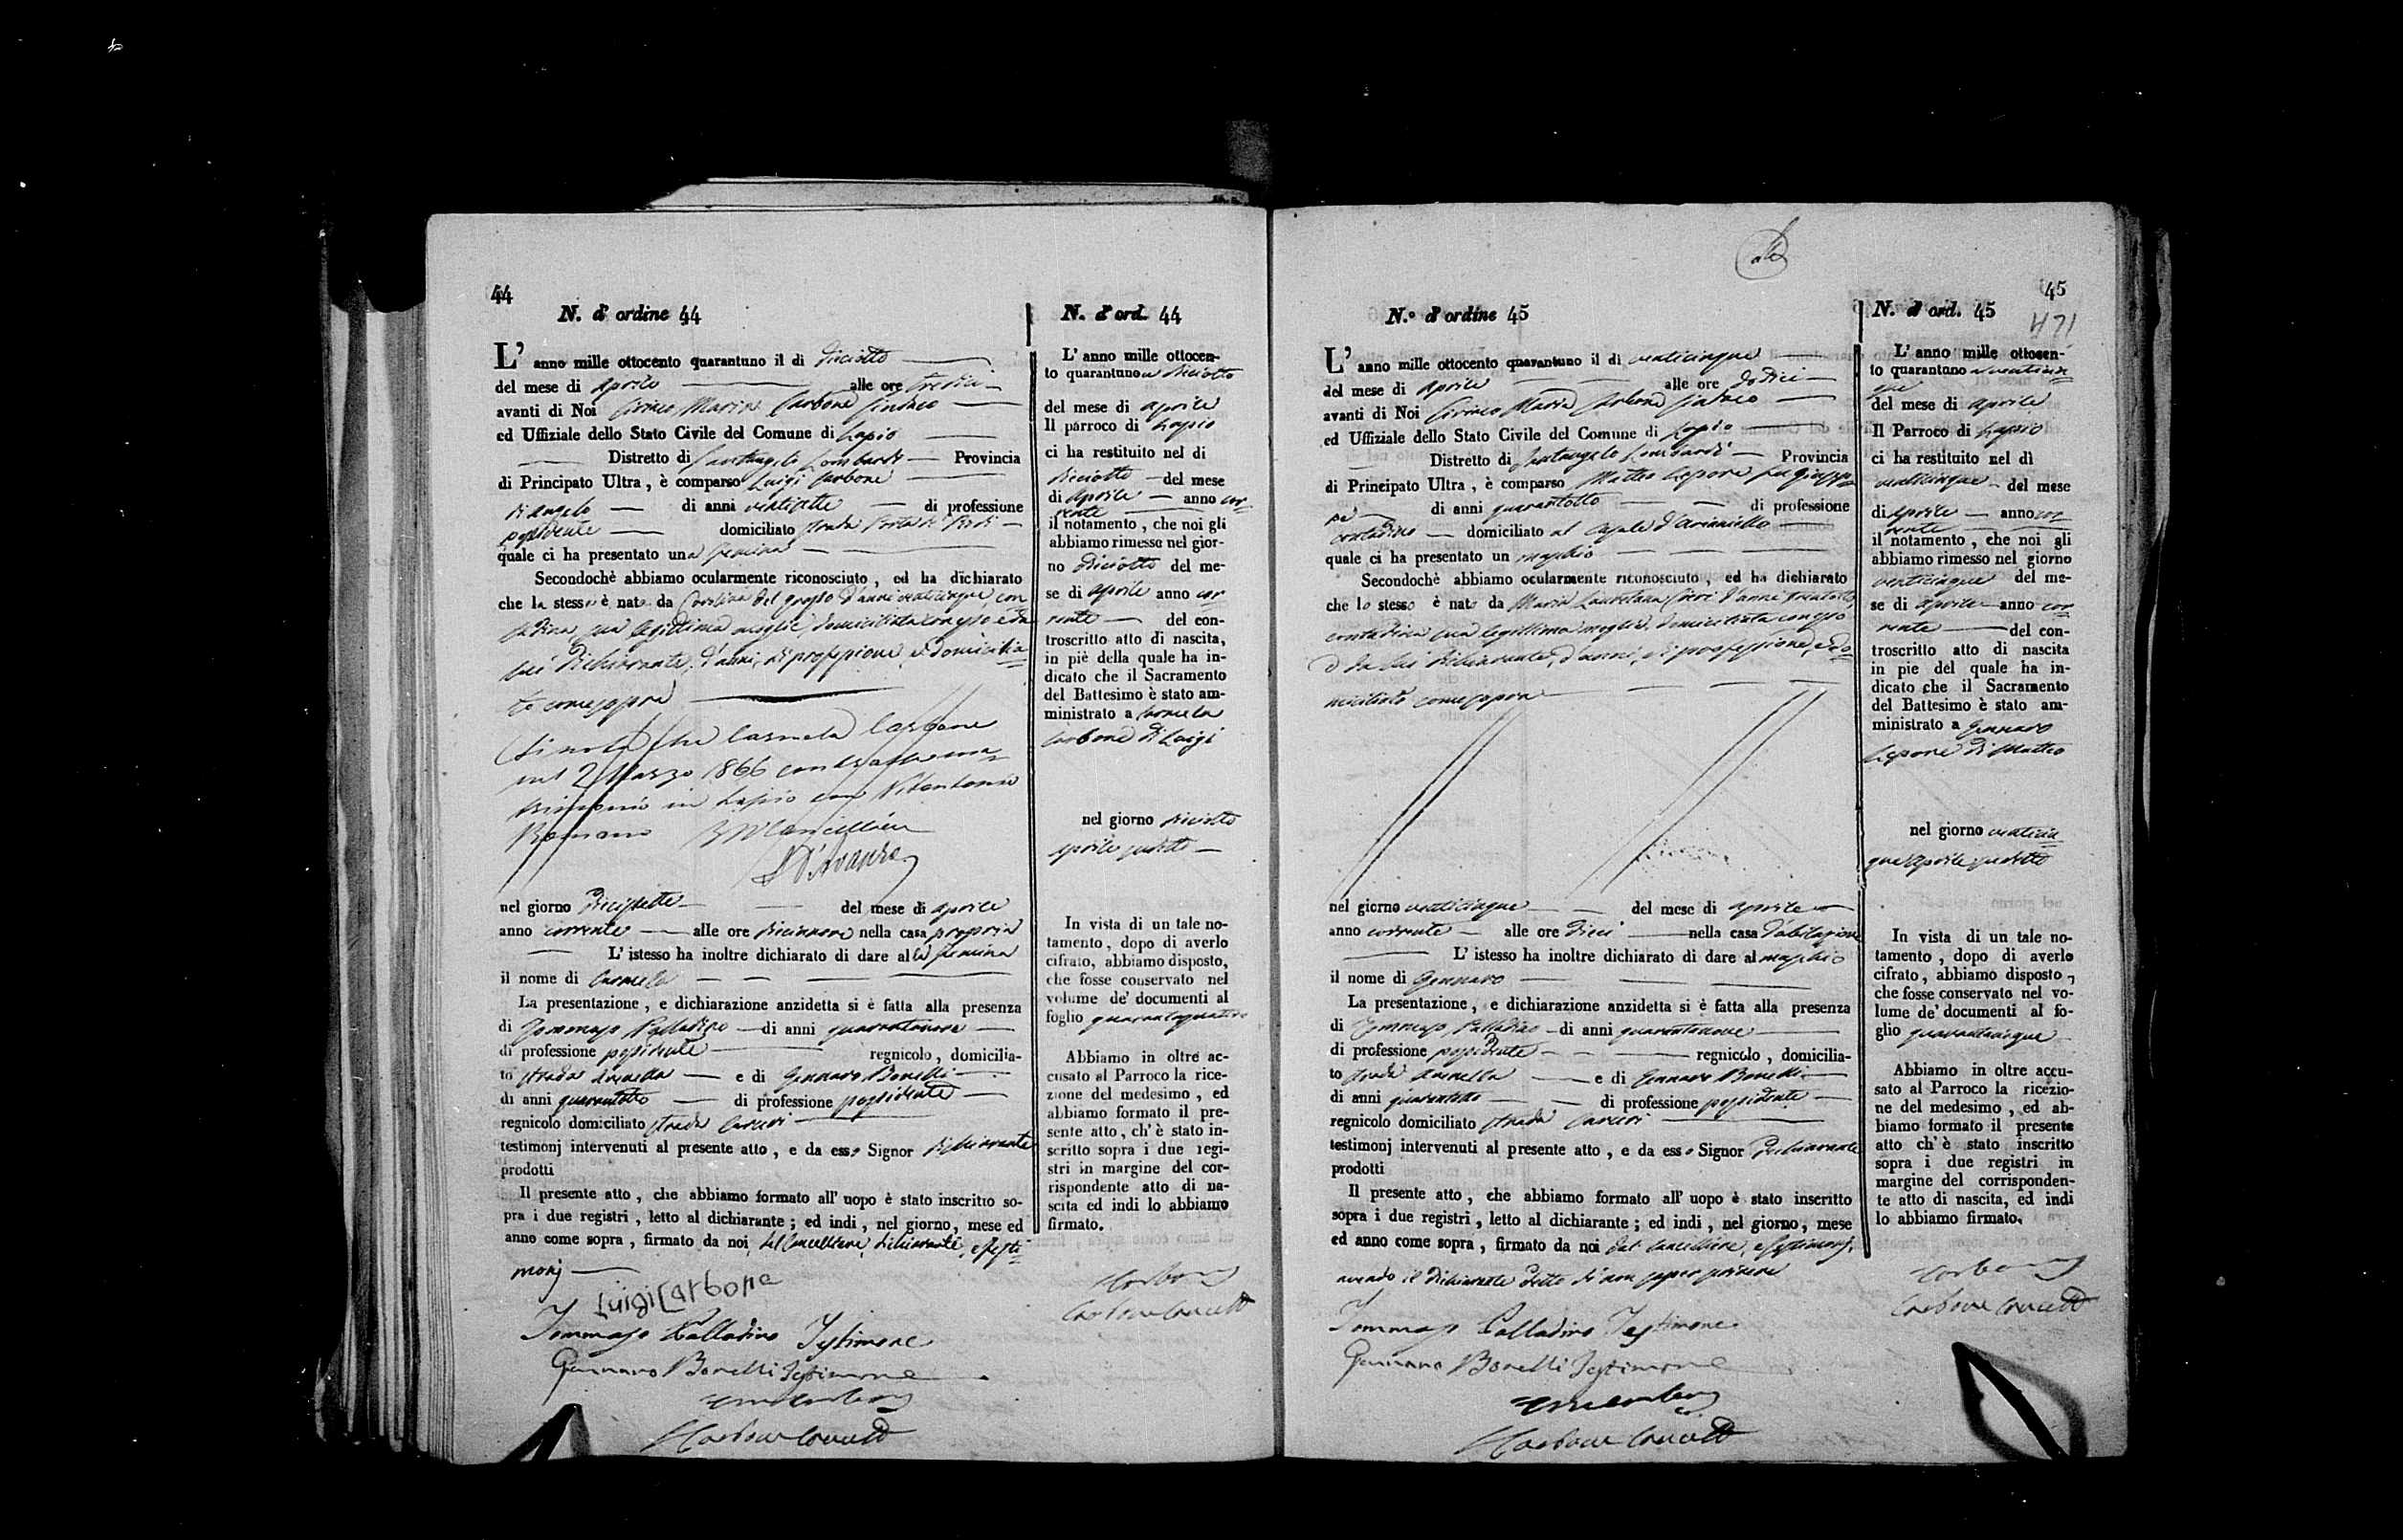 44
N. d' ordine 44
L' anno mille ottocento quarantuno il di diciotto
del mese di aprile alle ore tredici
avanti di Noi Ciriaco Maria Carbone Sindaco
ed Uffiziale dello Stato Civile del Comune di Lapio
Distretto di Santangelo Lombardi Provincia
di Principato Ultra, è comparso Luigi Carbone
di Angelo di anni ventisette di professione
possidente domiciliato strada Porta di
quale ci ha presentato una femina
Secondochè abbiamo ocularmente riconosciuto, ed ha dichiarato
che la stessa è nata da Carolina del Grosso d'anni venticinque, con
tadina, sua legittima moglie, domiciliata con esso e da
lui dichiarante, d'anni, di professione, e domicilia
to come sopra
Si nota che Carmela Carbone
nel 2 Marzo 1866 contrasse ma
trimonio in Lapio con Vitantonio
Romano Il Cancelliere
D'Avanzo
nel giorno diciassette del mese di aprile
anno corrente alle ore diciannove nella casa propria
L' istesso ha inoltre dichiarato di dare alla femina
il nome di Carmela
La presentazione, e dichiarazione anzidetta si è fatta alla presenza
di Tommaso Palladino di anni quarantanove
di professione possidente regnicolo, domicilia-
to strada Annella e di Gennaro Bonelli
di anni quarantotto di professione possidente
regnicolo domiciliato strada Carceri
testimonj intervenuti al presente atto, e da esso Signor dichiarante
prodotti
Il presente atto, che abbiamo formato all' uopo è stato inscritto so-
pra i due registri, letto al dichiarante; ed indi, nel giorno, mese ed
anno come sopra, firmato da noi, dal Cancelliere, dichiarante, e testi
monj
Luigi Carbone
Tommaso Palladino Testimone
Gennaro Bonelli Testimone
Carbone
N. d' ord. 44
L' anno mille ottocen-
to quarantuno a diciotto
del mese di aprile
Il parroco di Lapio
ci ha restituito nel di
diciotto del mese
di aprile anno cor
rente
il notamento, che noi gli
abbiamo rimesso nel gior-
no diciotto del me-
se di aprile anno cor
rente del con-
troscritto atto di nascita,
in piè della quale ha in-
dicato che il Sacramento
del Battesimo è stato am-
ministrato a Carmela
Carbone di Luigi
nel giorno diciotto
aprile suddetto
In vista di un tale no-
tamento, dopo di averlo
cifrato, abbiamo disposto,
che fosse conservato nel
volume de' documenti al
foglio quarantaquattro
Abbiamo in oltre ac-
cusato al Parroco la rice-
zione del medesimo, ed
abbiamo formato il pre-
sente atto, ch' è stato in-
scritto sopra i due regi-
stri in margine del cor-
rispondente atto di na-
scita ed indi lo abbiamo
firmato.
Carbone
45
N.º d' ordine 45
L' anno mille ottocento quarantuno il di venticinque
del mese di aprile alle ore dodici
avanti di Noi Ciriaco Maria Carbone Sindaco
ed Uffiziale dello Stato Civile del Comune di Lapio
Distretto di Santangelo Lombardi Provincia
di Principato Ultra, è comparso Matteo Lepore fu Giusep
pe di anni quarantotto di professione
contadino domiciliato al Casale d'Arianiello
quale ci ha presentato un maschio
Secondochè abbiamo ocularmente riconosciuto, ed ha dichiarato
che lo stesso è nato da Maria Lauretana d'anni trentotto
contadina sua legittima moglie, domiciliata con esso
e da lui dichiarante, d'anni, di professione, e do
miciliato come sopra
nel giorno venticinque del mese di aprile
anno corrente alle ore dieci nella casa d'abitazione
L' istesso ha inoltre dichiarato di dare al maschio
il nome di Gennaro
La presentazione, e dichiarazione anzidetta si è fatta alla presenza
di Tommaso Palladino di anni quarantanove
di professione possidente regnicolo, domicilia-
to strada Annella e di Gennaro Bonelli
di anni quarantotto di professione possidente
regnicolo domiciliato strada Carceri
testimonj intervenuti al presente atto, e da esso Signor dichiarante
prodotti
Il presente atto, che abbiamo formato all' uopo è stato inscritto
sopra i due registri, letto al dichiarante; ed indi, nel giorno, mese
ed anno come sopra, firmato da noi dal Cancelliere, e testimonj,
avendo il dichiarante detto di non sapere scrivere
Tommaso Palladino Testimone
Gennaro Bonelli Testimone
Carbone
N. d' ord. 45
L' anno mille ottocen-
to quarantuno a venticin
que
del mese di aprile
Il Parroco di Lapio
ci ha restituito nel dì
venticinque del mese
di aprile anno cor
rente
il notamento, che noi gli
abbiamo rimesso nel giorno
venticinque del me-
se di aprile anno cor
rente del con-
troscritto atto di nascita
in pie del quale ha in-
dicato che il Sacramento
del Battesimo è stato am-
ministrato a Gennaro
Lepore di Matteo
nel giorno venticin
que aprile suddetto
In vista di un tale no-
tamento, dopo di averlo
cifrato, abbiamo disposto,
che fosse conservato nel vo-
lume de' documenti al fo-
glio quarantacinque
Abbiamo in oltre accu-
sato al Parroco la ricezio-
ne del medesimo, ed ab-
biamo formato il presente
atto ch' è stato inscritto
sopra i due registri in
margine del corrisponden-
te atto di nascita, ed indi
lo abbiamo firmato.
Carbone